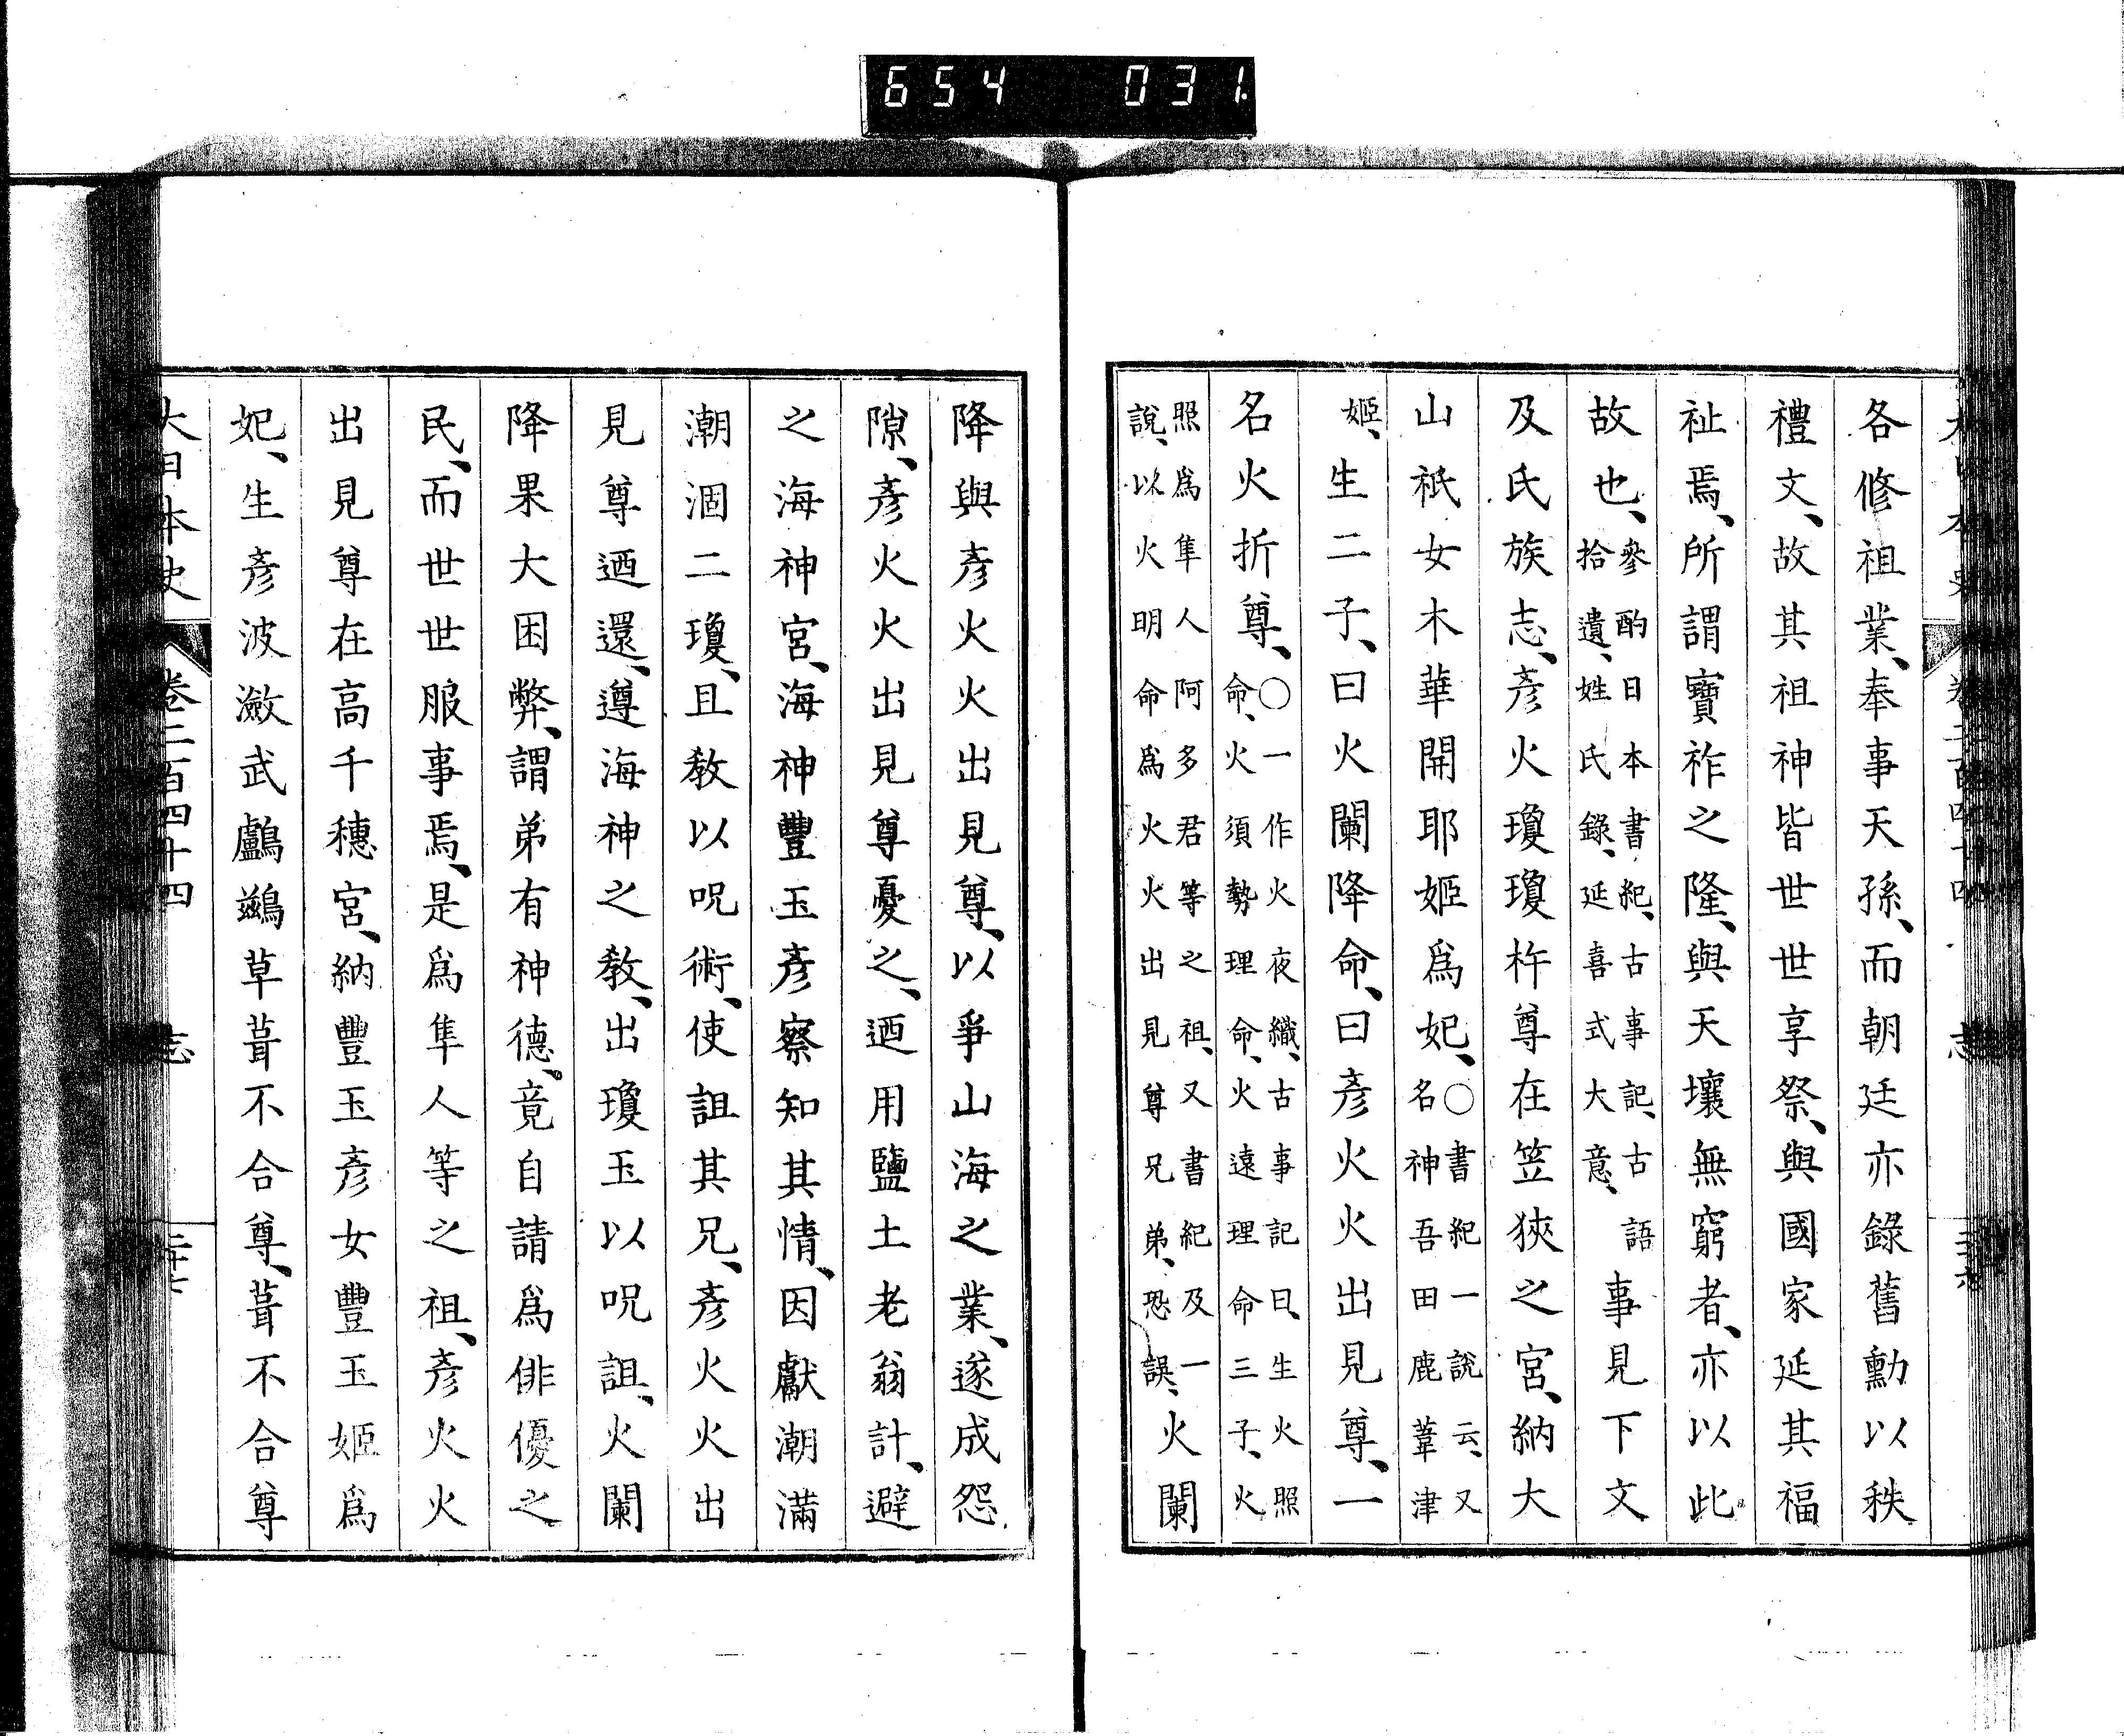 654 031
各修祖業、奉事天孫、而朝廷亦錄舊勳以秩
禮文、故其祖神皆世世享祭、與國家延其福
祉焉、所謂寶祚之隆、與天壤無窮者、亦以此
故也、參酌日本書紀、古事記、古語
拾遺、姓氏錄、延喜式大意、事見下文
及氏族志、彥火瓊瓊杵尊在笠狹之宮、納大
山祇女木華開耶姬爲妃、〇書紀一說云、又
名神吾田鹿葦津
姬、生二子、曰火闌降命、曰彥火火出見尊、一
名火折尊、〇一作火夜織、古事記曰、生火照
命、火須勢理命、火遠理命三子、火
照爲隼人阿多君等之祖、又書紀及一
說、以火明命爲火火出見尊兄弟、恐誤、火闌
降與彥火火出見尊、以爭山海之業、遂成怨
隙、彥火火出見尊憂之、迺用鹽土老翁計、避
之海神宮、海神豐玉彥察知其情、因獻潮滿
潮涸二瓊、且教以呪術、使詛其兄、彥火火出
見尊迺還、遵海神之教、出瓊玉以呪詛、火闌
降果大困弊、謂弟有神德、竟自請爲俳優之
民、而世世服事焉、是爲隼人等之祖、彥火火
出見尊在高千穗宮、納豐玉彥女豐玉姬爲
妃、生彥波瀲武鸕鷀草葺不合尊、葺不合尊
大日本史 卷二百四十四 志